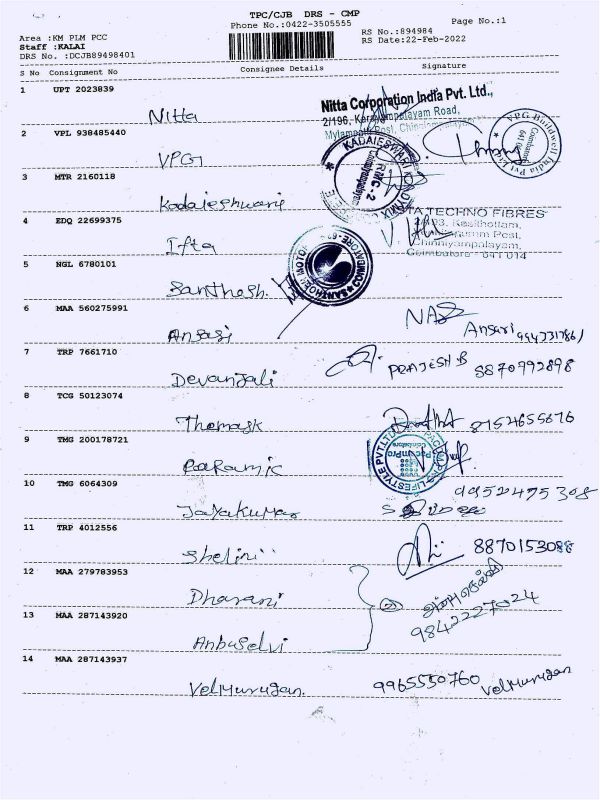 TPC/CJB DRS - CMP
Phone No.:0422-3505555
Page No.:1
Area :KM PLM PCC
Staff :KALAI
DRS No. :DCJB89498401
RS No.:894984
RS Date:22-Feb-2022
S No Consignment No Consignee Details Signature
1 UPT 2023839
Nitta
Nitta Corporation India Pvt. Ltd.,
2/196, Karayampalayam Road,
Mylampatti Post, Chinniyampalayam
2 VPL 938485440
VPG
VPG Buildwell India Pvt Ltd
Coimbatore
3 MTR 2160118
Kadaieshwari
KADAIESWARI READYMIX
RMC-2
4 EDQ 22699375
Ifta
TECHNO FIBRES
Kasithottam,
Post,
Chinniyampalayam,
Coimbatore - 641 014
5 NGL 6780101
Santhosh
SANTHOSH MOTOR
COIMBATORE
6 MAA 560275991
Ansari
Ansari
7 TRP 7661710
Devanjali
PRAJESH B 8870992898
8 TCG 50123074
Thomask
8152655676
9 TMG 200178721
Paramic
LIFESTYLE PVT.LTD
10 TMG 6064309
Jayakumar
9952475308
11 TRP 4012556
Shelini
8870153088
12 MAA 279783953
Dharani
2
9842227024
13 MAA 287143920
Anbuselvi
14 MAA 287143937
Velmurugan.
9965550760 velmurugan